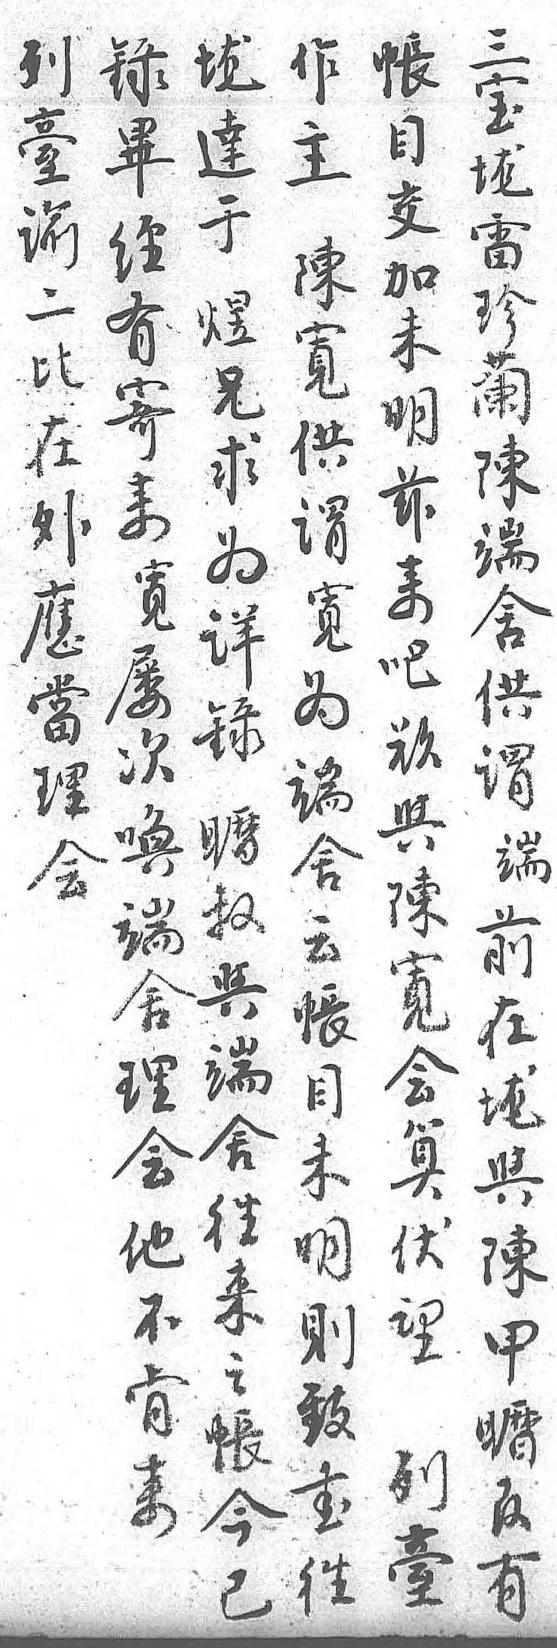 三宝垅雷珍蘭陳端舍供謂端前在垅與陳甲瞃及有
帳目交加未明玆来吧欵與陳寬会算伏望　列臺
作主　陳寬供謂寬为端舍云帳目未明則致書往
垅達于　煜兄求为詳録　瞃叔與端舍往来之帳今已
録畢經有寄来寬屡次喚端舍理会他不肯来
列臺諭二比在外應當理会